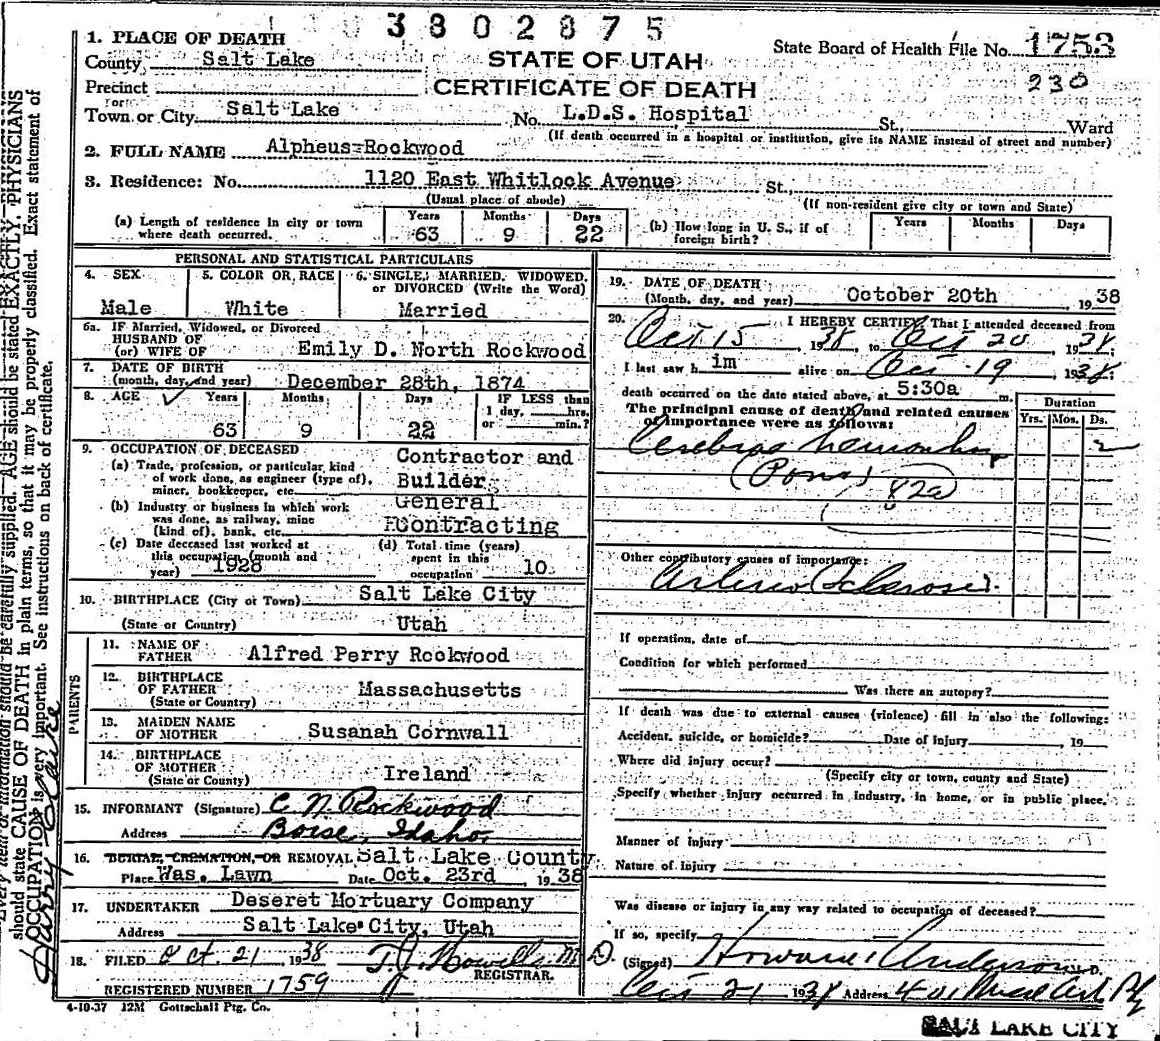 3802875
1. PLACE OF DEATH
State Board of Health File No. 1753
County Salt Lake
STATE OF UTAH
230
Precinct
CERTIFICATE OF DEATH
or
Town or City Salt Lake No. L.D.S. Hospital St., Ward
(If death occurred in a hospital or institution, give its NAME instead of street and number)
2. FULL NAME Alpheus Rockwood
3. Residence: No. 1120 East Whitlock Avenue St.,
(Usual place of abode) (If non-resident give city or town and State)
(a) Length of residence in city or town where death occurred. Years 63 Months 9 Days 22
(b) How long in U. S., if of foreign birth? Years Months Days
PERSONAL AND STATISTICAL PARTICULARS
4. SEX Male
5. COLOR OR RACE White
6. SINGLE, MARRIED, WIDOWED, or DIVORCED (Write the Word) Married
6a. IF Married, Widowed, or Divorced
HUSBAND OF
(or) WIFE OF Emily D. North Rockwood
7. DATE OF BIRTH
(month, day, and year) December 28th, 1874
8. AGE Years 63 Months 9 Days 22 IF LESS than 1 day, hrs. or min.?
9. OCCUPATION OF DECEASED
(a) Trade, profession, or particular kind of work done, as engineer (type of), miner, bookkeeper, etc. Contractor and Builder
(b) Industry or business in which work was done, as railway, mine (kind of), bank, etc. General Contracting
(c) Date deceased last worked at this occupation (month and year) 1928
(d) Total time (years) spent in this occupation 10
10. BIRTHPLACE (City or Town) Salt Lake City
(State or Country) Utah
PARENTS
11. NAME OF FATHER Alfred Perry Rockwood
12. BIRTHPLACE OF FATHER (State or Country) Massachusetts
13. MAIDEN NAME OF MOTHER Susanah Cornwall
14. BIRTHPLACE OF MOTHER (State or County) Ireland
15. INFORMANT (Signature) C N Rockwood
Address Boise, Idaho.
16. BURIAL, CREMATION, OR REMOVAL Salt Lake County
Place Was. Lawn Date Oct. 23rd, 1938
17. UNDERTAKER Deseret Mortuary Company
Address Salt Lake City, Utah
18. FILED Oct. 21 1938 T.J. Howells M.D.
REGISTRAR.
REGISTERED NUMBER 1759
4-10-37 12M Gottschall Ptg. Co.
19. DATE OF DEATH
(Month, day, and year) October 20th 1938
20. I HEREBY CERTIFY, That I attended deceased from
Oct 15, 1938, to Oct 20 1938
I last saw h im alive on Oct 19 1938;
death occurred on the date stated above, at 5:30a m.
The principal cause of death and related causes of importance were as follows:
Duration
Yrs. Mos. Ds.
Cerebral hemorrhage 2
(Pons)
82a
Other contributory causes of importance:
Arterio Sclerosis.
If operation, date of
Condition for which performed
Was there an autopsy?
If death was due to external causes (violence) fill in also the following:
Accident, suicide, or homicide? Date of injury 19
Where did injury occur?
(Specify city or town, county and State)
Specify whether injury occurred in industry, in home, or in public place.
Manner of injury
Nature of injury
Was disease or injury in any way related to occupation of deceased?
If so, specify
(Signed) Howard Anderson M. D.
Oct 21 1938 Address 401 Med Arts Bldg
SALT LAKE CITY
Every item of information should be carefully supplied. AGE should be stated EXACTLY. PHYSICIANS
should state CAUSE OF DEATH in plain terms, so that it may be properly classified. Exact statement of
OCCUPATION is very important. See instructions on back of certificate.